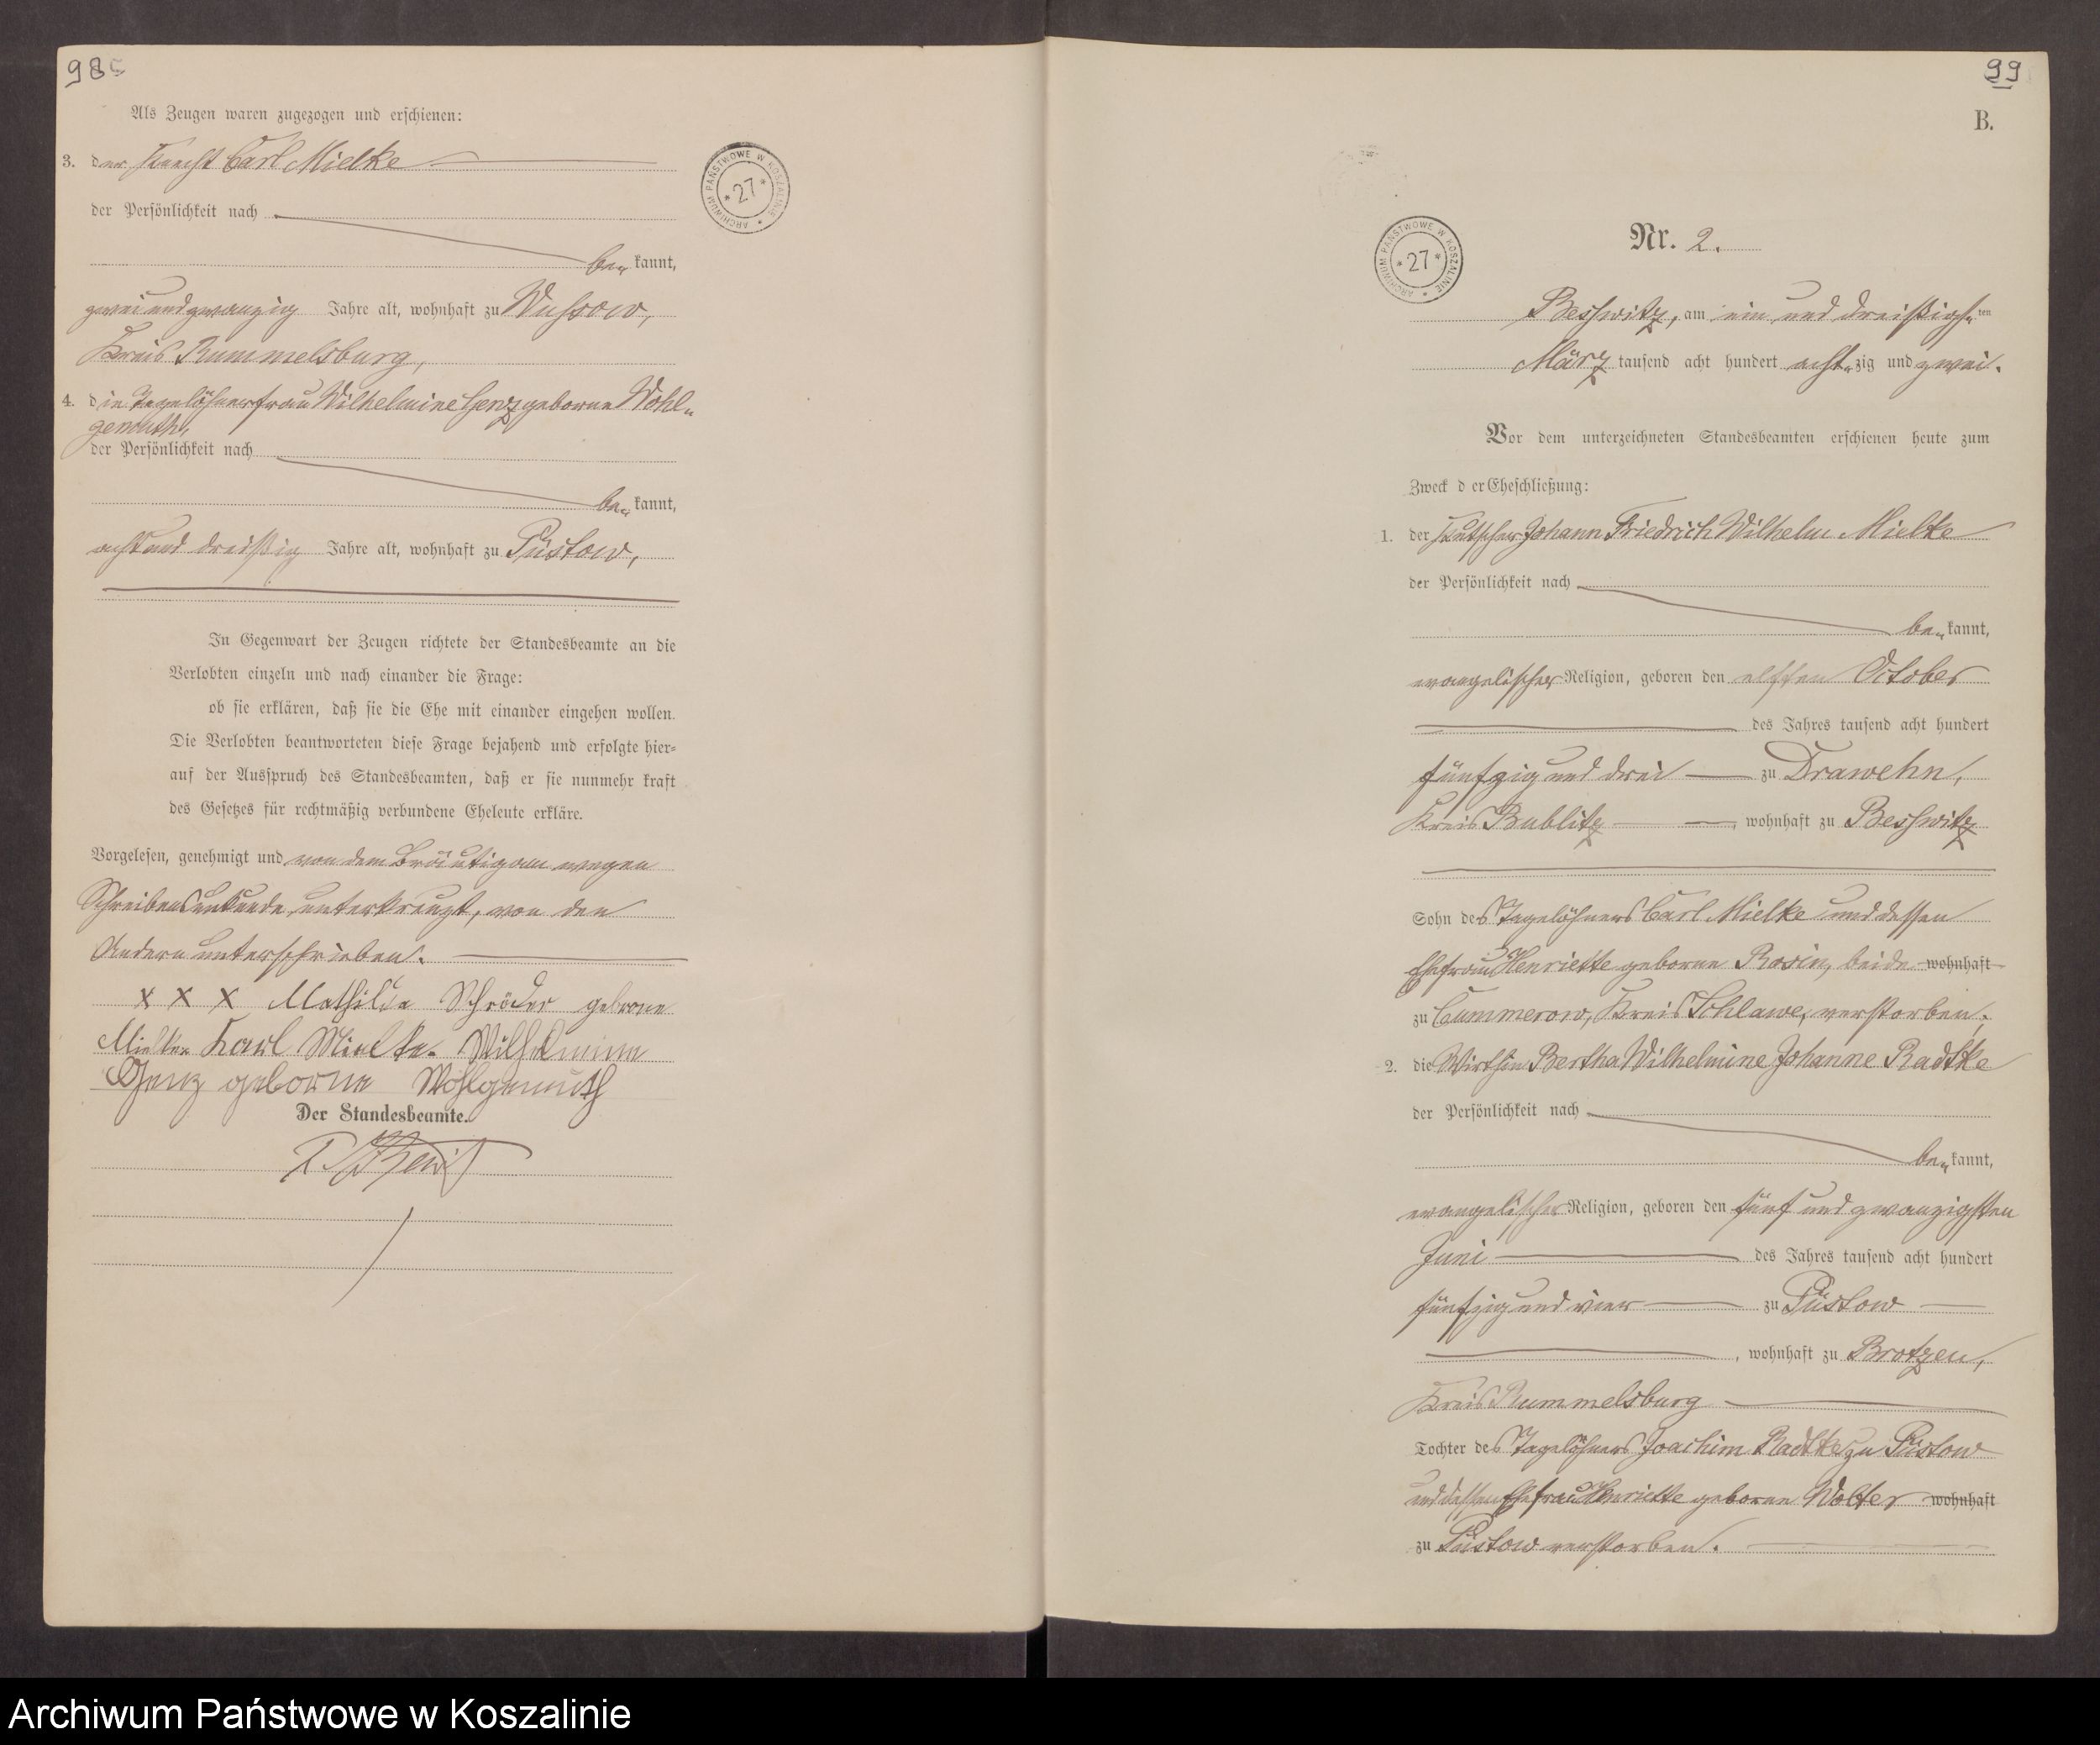 98
Als Zeugen waren zugezogen und erschienen:
3. der Knecht Carl Mielke
der Persönlichkeit nach
bekannt,
zwei und zwanzig Jahre alt, wohnhaft zu Wussow,
Kreis Rummelsburg,
4. die Tagelöhnerfrau Wilhelmine Genz geborne Wohl-
gemuth,
der Persönlichkeit nach
bekannt,
acht und dreißig Jahre alt, wohnhaft zu Püstow,
In Gegenwart der Zeugen richtete der Standesbeamte an die
Verlobten einzeln und nach einander die Frage:
ob sie erklären, daß sie die Ehe mit einander eingehen wollen.
Die Verlobten beantworteten diese Frage bejahend und erfolgte hier-
auf der Ausspruch des Standesbeamten, daß er sie nunmehr kraft
des Gesetzes für rechtmäßig verbundene Eheleute erkläre.
Vorgelesen, genehmigt und von dem Bräutigam wegen
Schreibensunkunde unterkreuzt, von den
Andern unterschrieben.
x x x Mathilde Schröder geborne
Mielke Karl Mielke. Wilhelmine
Genz geborne Wohlgemuth
Der Standesbeamte.
ARCHIWUM PAŃSTWOWE W KOSZALINIE
* 27 *
99
B.
ARCHIWUM PAŃSTWOWE W KOSZALINIE
* 27 *
Nr. 2.
Besswitz, am ein und dreißigsten
März tausend acht hundert achtzig und zwei.
Vor dem unterzeichneten Standesbeamten erschienen heute zum
Zweck der Eheschließung:
1. der Kutscher Johann Friedrich Wilhelm Mielke
der Persönlichkeit nach
bekannt,
evangelischer Religion, geboren den elften October
des Jahres tausend acht hundert
fünfzig und drei zu Drawehn,
Kreis Bublitz, wohnhaft zu Besswitz
Sohn des Tagelöhners Carl Mielke und dessen
Ehefrau Henriette geborne Rosin, beide wohnhaft
zu Cummerow, Kreis Schlawe, verstorben;
2. die Wirthin Bertha Wilhelmine Johanne Radtke
der Persönlichkeit nach
bekannt,
evangelischer Religion, geboren den fünf und zwanzigsten
Juni des Jahres tausend acht hundert
fünfzig und vier zu Püstow
, wohnhaft zu Brotzen,
Kreis Rummelsburg
Tochter des Tagelöhners Joachim Radtke zu Püstow
und dessen Ehefrau Henriette geborne Wolter wohnhaft
zu Püstow verstorben.
Archiwum Państwowe w Koszalinie